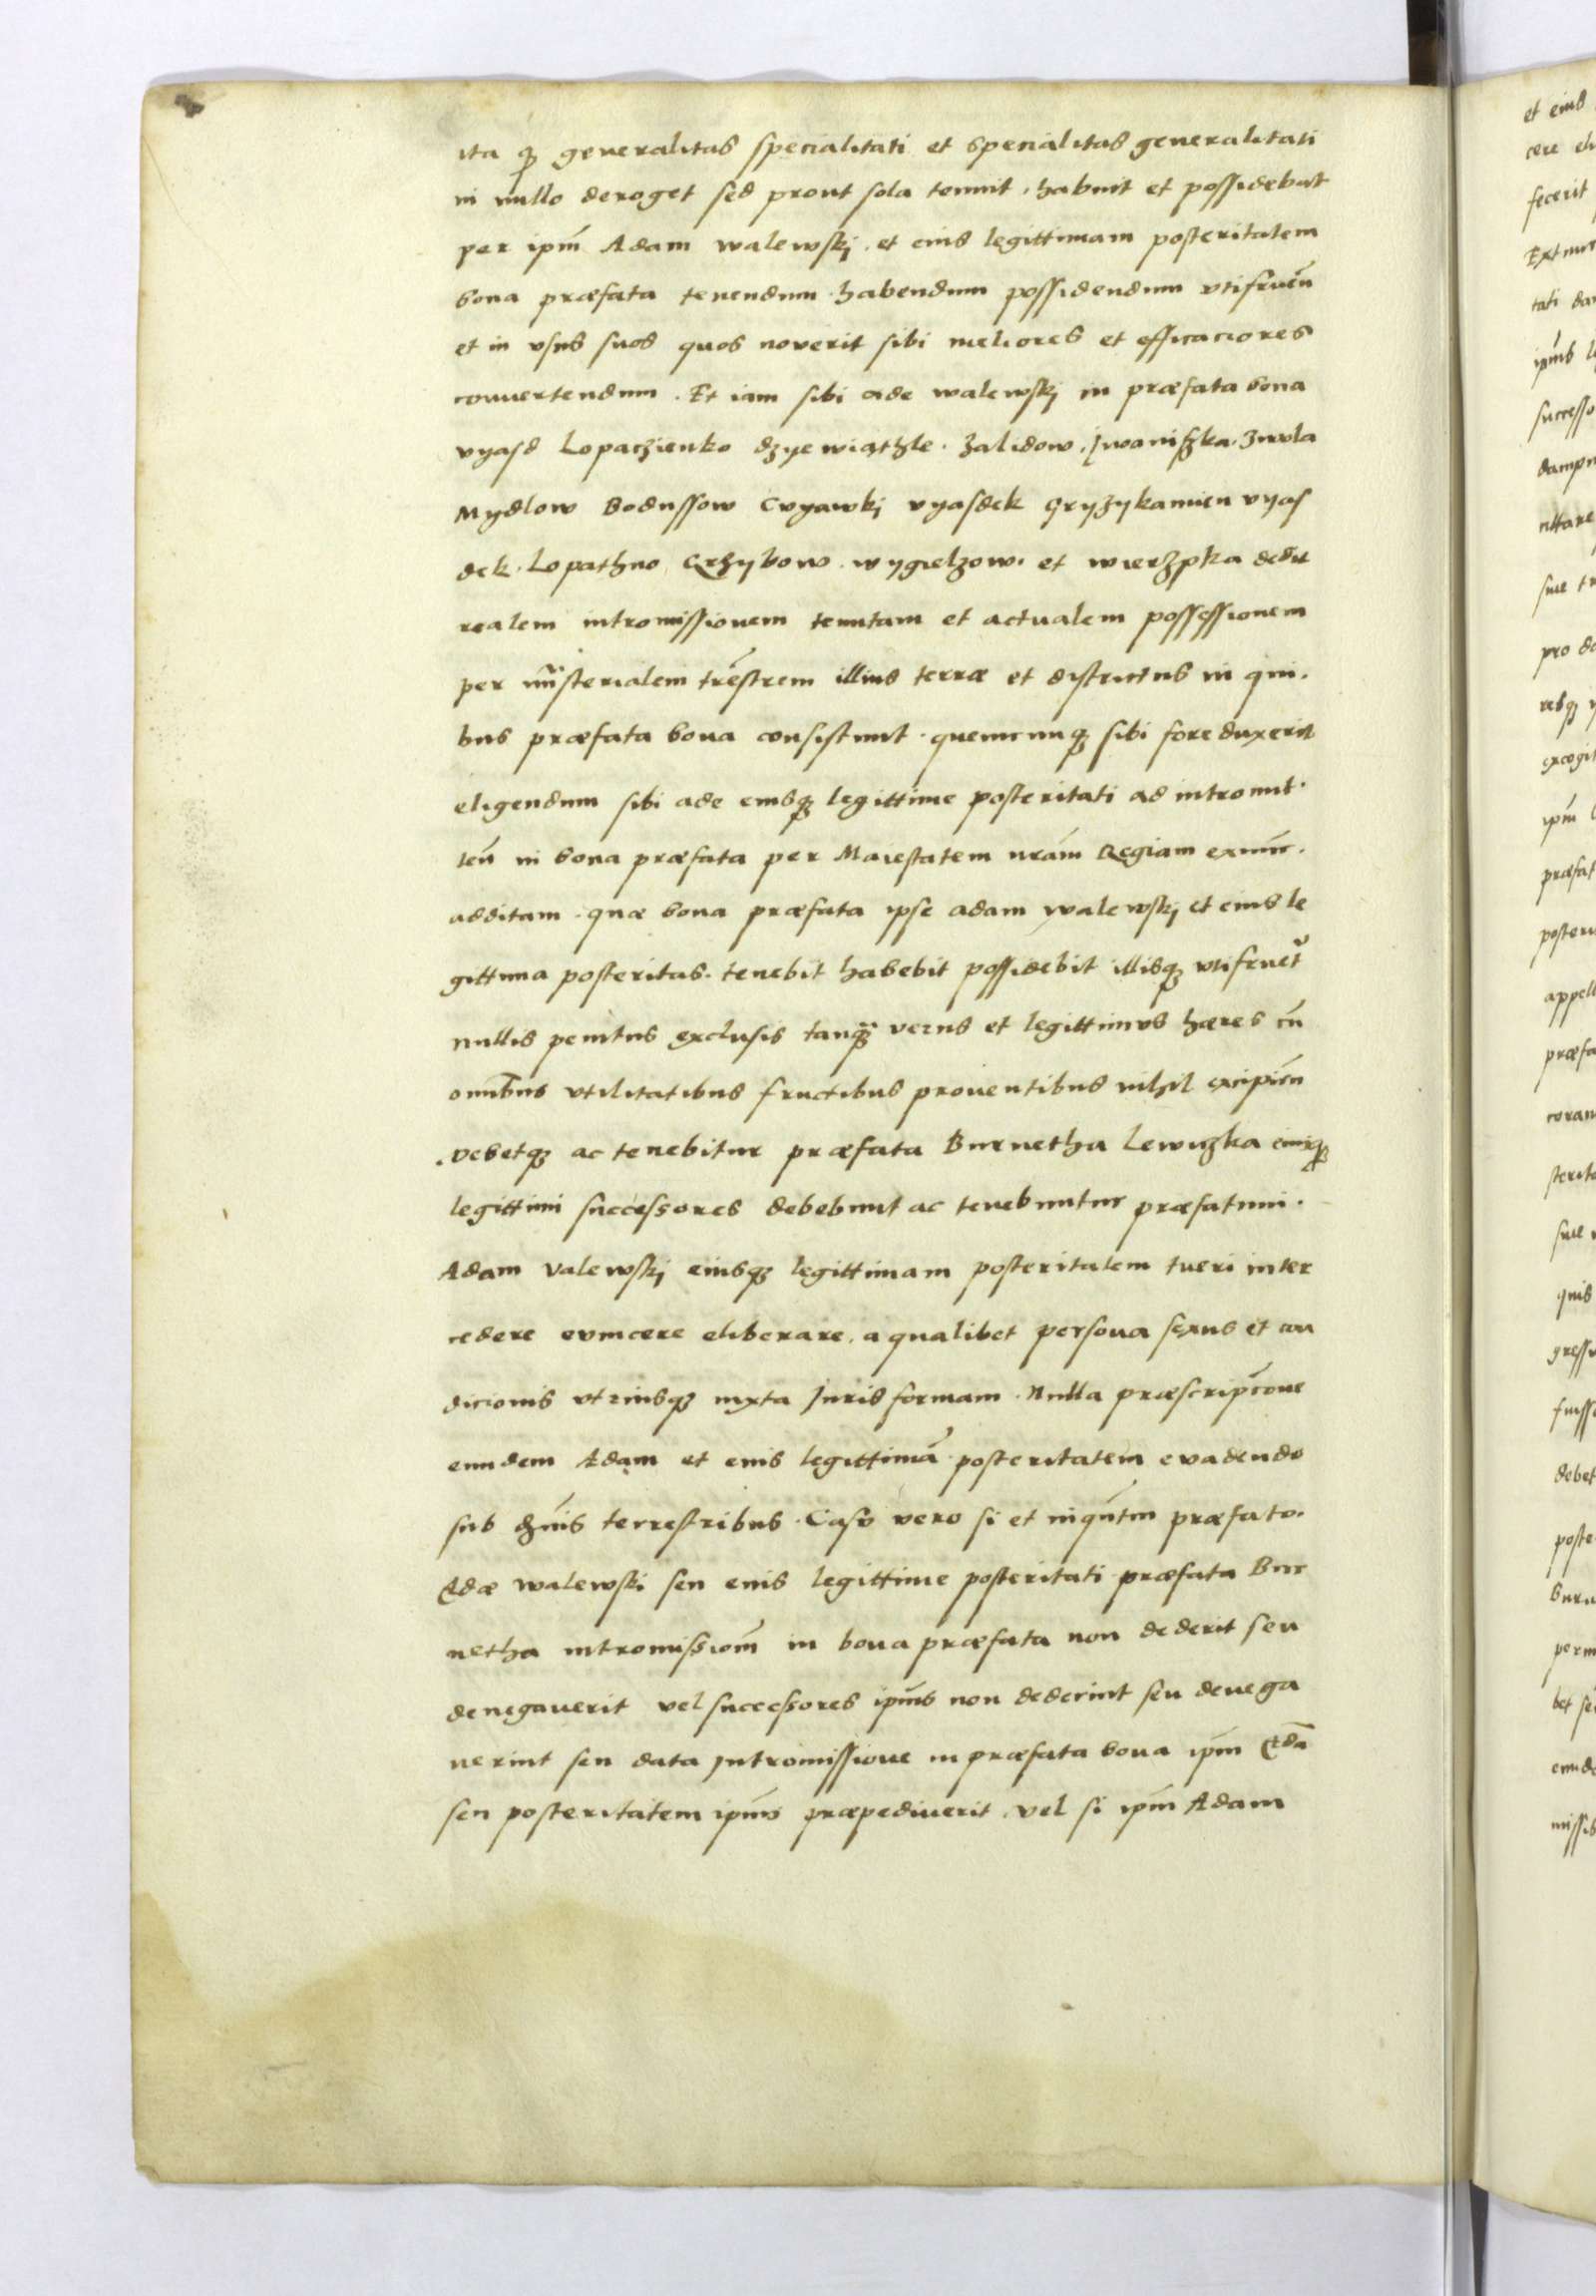 ita qꝫ generalitas specialitati et specialitas generalitati
in nullo deroget sed prout sola tenuit, habuit et possidebat
per ipm̄ Adam walewskj et eius legittimam posteritatem
bona præfata tenendum habendum possidendum vtifruen̄
et in vsus suos quos noverit sibi meliores et efficaciores
convertendum. Et iam sibi ade walewskj in præfata bona
vyasd Lopaczienko dzyewiąthle. Zalidow. Jwaniszka. Zwola
Mydlow Bodussow Cvyawkj vyasdek Gryzykamien vyas
dek. Lopathno Grzybow. wygielzow. et wierzpka dedit
realem intromissionem tenutam et actualem possessionem
per mīsterialem trēstrem illius terræ et districtus in qui.
bus præfata bona consistunt. quemcunqꝫ sibi fore duxerit
eligendum sibi ade eiusqꝫ legittime posteritati ad intromit.
ten̄ in bona præfata per Maiestatem nram̄ Regiam exnunc.
additam. quæ bona præfata ipse adam walewskj et eius le
gittima posteritas. tenebit habebit possidebit illisqꝫ vtifruet᷑
nullis penitus exclusis tanqꝫ verus et legittimus hæres cū
omībus vtilitatibus fructibus proventibus nihil excipien̄
. Debetqꝫ ac tenebitur præfata Burnetha Lewiczka eiusqꝫ
legittimi successores debebunt ac tenebuntur præfatum.
Adam Valewskj eiusqꝫ legittimam posteritatem tueri inter
cedere evincere eliberare. a qualibet persona sexus et con
dicionis vtriusqꝫ iuxta Juris formam. Nulla præscripc̄one
eundem Adam et eius legittimā posteritatem evadendo
sub terrestribus. Casu vero si et inqn̄tm præfato.
Adæ walewski seu eius legittime posteritati præfata Bur
netha intromissiom̄ in bona præfata non dederit seu
denegauerit vel successores ipīus non dederint seu denega
uerint seu data Jntromissione in præfata bona ipm̄ Adā
seu posteritatem ipīus præpediuerit. vel si ipm̄ Adam